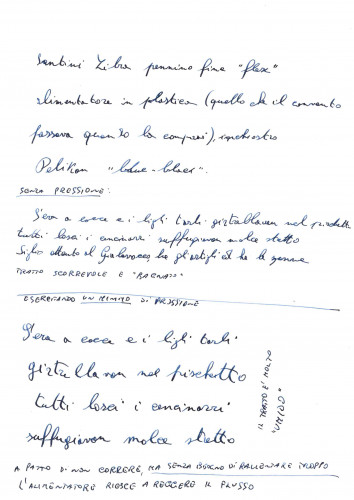 Santini Libra pennino fine "flex"
alimentatore in plastica (quello che il convento
passava quando la comprai), inchiostro
Pelikan "blue-black".
SENZA PRESSIONE:
S'era a cocce e i ligli tarli
girtrellavan nel pischetto
tutti losci i cincinarri
suffuggiavan molce stetto
TRATTO SCORREVOLE E "BAGNATO"
ESERCITANDO UN MINIMO DI PRESSIONE
S'era a cocce e i ligli tarli
girtrellavan nel pischetto
tutti losci i cincinarri
suffuggiavan molce stetto
IL TRATTO E' MOLTO
"UMIDO"
A PATTO DI NON CORRERE, MA SENZA BISOGNO DI RALLENTARE TROPPO
L'ALIMENTATORE RIESCE A REGGERE IL FLUSSO